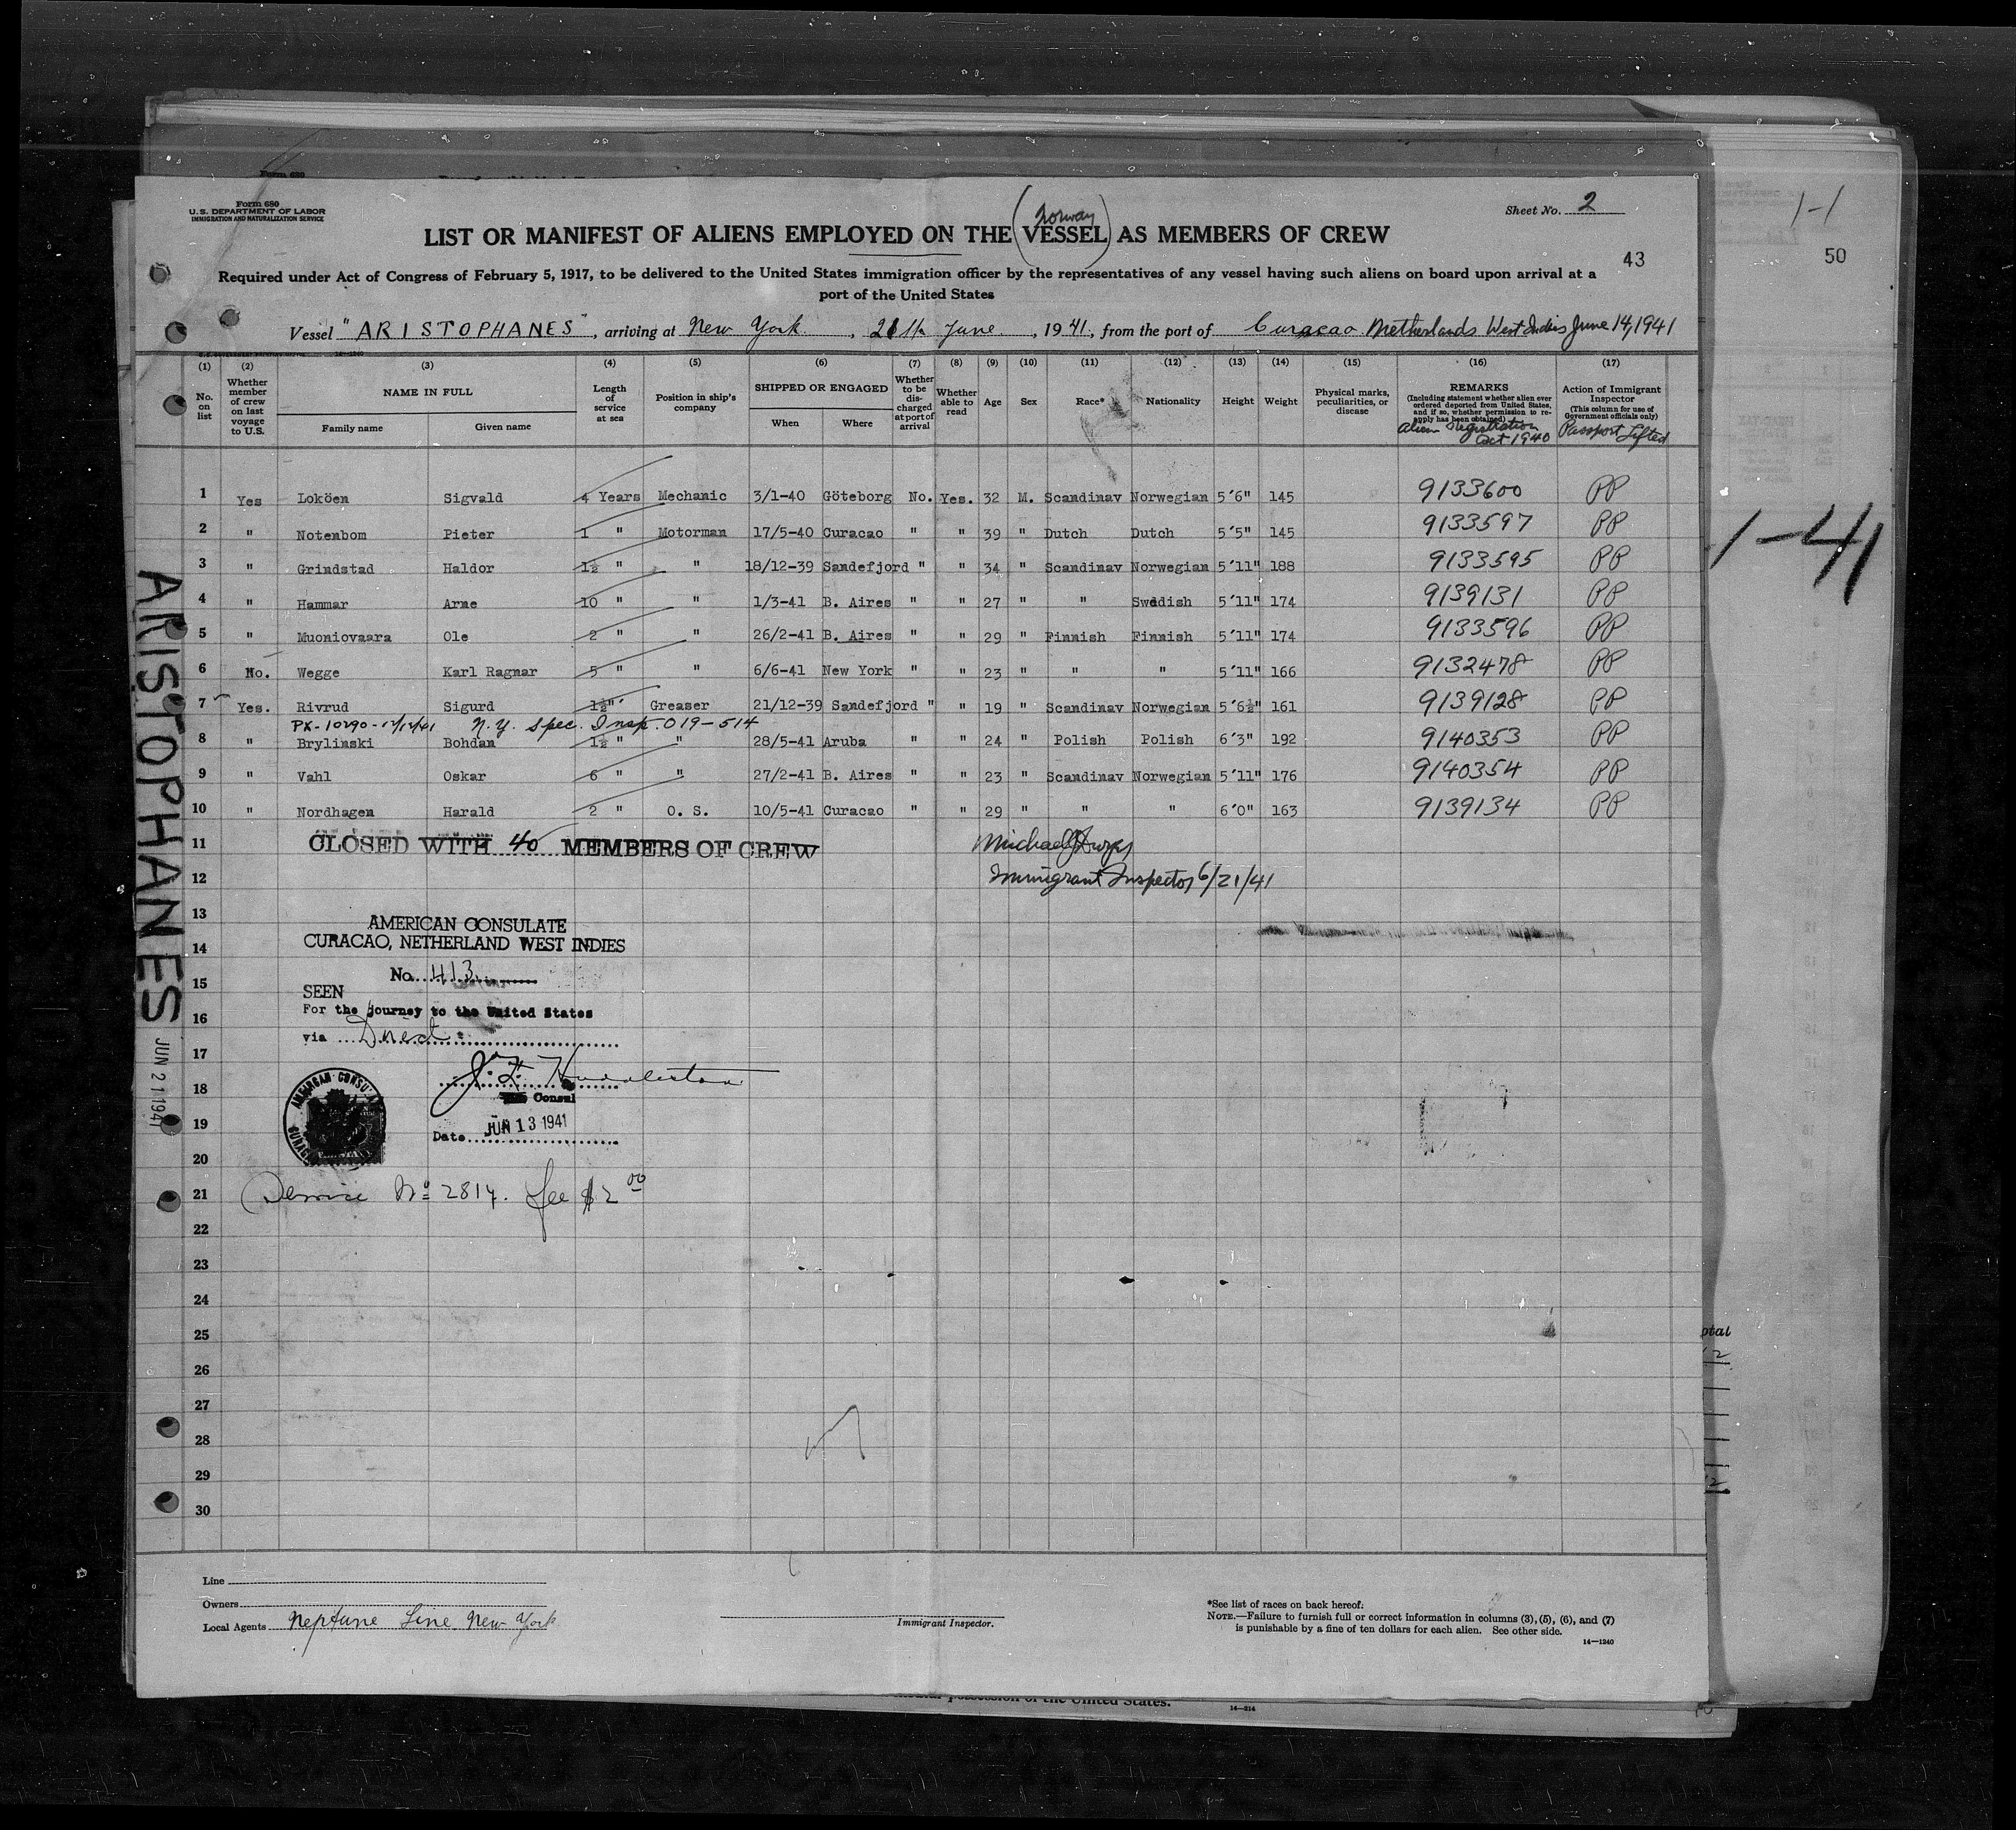 Form 680
U.S. DEPARTMENT OF LABOR
IMMIGRATION AND NATURALIZATION SERVICE
Sheet No. 2
(Norway)
LIST OR MANIFEST OF ALIENS EMPLOYED ON THE VESSEL AS MEMBERS OF CREW
43
Required under Act of Congress of February 5, 1917, to be delivered to the United States immigration officer by the representatives of any vessel having such aliens on board upon arrival at a
port of the United States
Vessel "ARISTOPHANES", arriving at New York, 21th June, 1941, from the port of Curacao Netherlands West Indies June 14, 1941
(1) (2) (3) (4) (5) (6) (7) (8) (9) (10) (11) (12) (13) (14) (15) (16) (17)
No. on list
Whether member of crew on last voyage to U.S.
NAME IN FULL
Family name
Given name
Length of service at sea
Position in ship's company
SHIPPED OR ENGAGED
When
Where
Whether to be discharged at port of arrival
Whether able to read
Age
Sex
Race*
Nationality
Height
Weight
Physical marks, peculiarities, or disease
REMARKS
(Including statement whether alien ever ordered deported from United States, and if so, whether permission to reapply has been obtained)
Alien Registration Act 1940
Action of Immigrant Inspector
(This column for use of Government officials only)
Passport Lifted
1 Yes Loköen Sigvald 4 Years Mechanic 3/1-40 Göteborg No. Yes. 32 M. Scandinav Norwegian 5'6" 145 9133600 PP
2 " Notenbom Pieter 1 " Motorman 17/5-40 Curacao " " 39 " Dutch Dutch 5'5" 145 9133597 PP
3 " Grindstad Haldor 1½ " " 18/12-39 Sandefjord " " 34 " Scandinav Norwegian 5'11" 188 9133595 PP
4 " Hammar Arne 10 " " 1/3-41 B. Aires " " 27 " " Swedish 5'11" 174 9139131 PP
5 " Muoniovaara Ole 2 " " 26/2-41 B. Aires " " 29 " Finnish Finnish 5'11" 174 9133596 PP
6 No. Wegge Karl Ragnar 5 " " 6/6-41 New York " " 23 " " " 5'11" 166 9132478 PP
7 Yes. Rivrud Sigurd 1½ " Greaser 21/12-39 Sandefjord " " 19 " Scandinav Norwegian 5'6½" 161 9139128 PP
PX-10290-12/12/41 N.Y. Spec. Insp. 019-514
8 " Brylinski Bohdan 1½ " " 28/5-41 Aruba " " 24 " Polish Polish 6'3" 192 9140353 PP
9 " Vahl Oskar 6 " " 27/2-41 B. Aires " " 23 " Scandinav Norwegian 5'11" 176 9140354 PP
10 " Nordhagen Harald 2 " O. S. 10/5-41 Curacao " " 29 " " " 6'0" 163 9139134 PP
11 CLOSED WITH 40 MEMBERS OF CREW Michael J
12 Immigrant Inspector 6/21/41
13
AMERICAN CONSULATE
CURACAO, NETHERLAND WEST INDIES
14
No. 413
15
SEEN
For the journey to the United States
16
via Direct
17
18
Consul
AMERICAN CONSU
19
Date JUN 13 1941
20
21 Service No 2814. fee $2 00
22
23
24
25
26
27
28
29
30
ARISTOPHANES
JUN 21 1941
1-1
50
1-41
otal
12
12
Line
Owners
Local Agents Neptune Line New York
Immigrant Inspector.
*See list of races on back hereof:
NOTE.—Failure to furnish full or correct information in columns (3), (5), (6), and (7)
is punishable by a fine of ten dollars for each alien. See other side.
14—1240
possession of the United States.
14—214